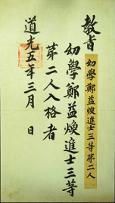 教旨
幼學鄭益煥進士三等第二人
幼學鄭益煥進士三等
第二人入格者
道光五年三月 日